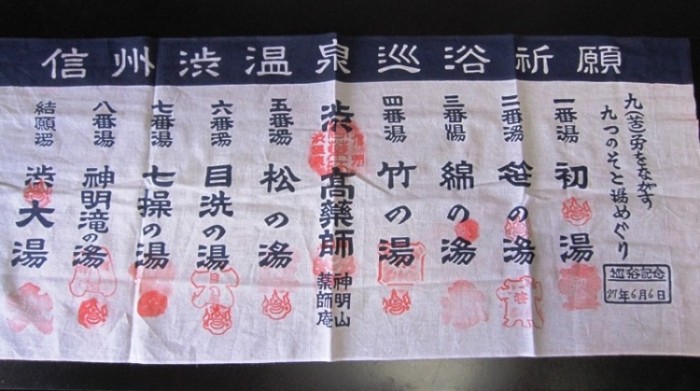 信州渋温泉巡浴祈願
九(苦)労をながす
九つのそと湯めぐり
巡浴記念
27年6月6日
一番湯 初湯
二番湯 笹の湯
三番湯 綿の湯
四番湯 竹の湯
渋高薬師 神明山
薬師庵
五番湯 松の湯
六番湯 目洗の湯
七番湯 七操の湯
八番湯 神明滝の湯
結願湯 渋大湯